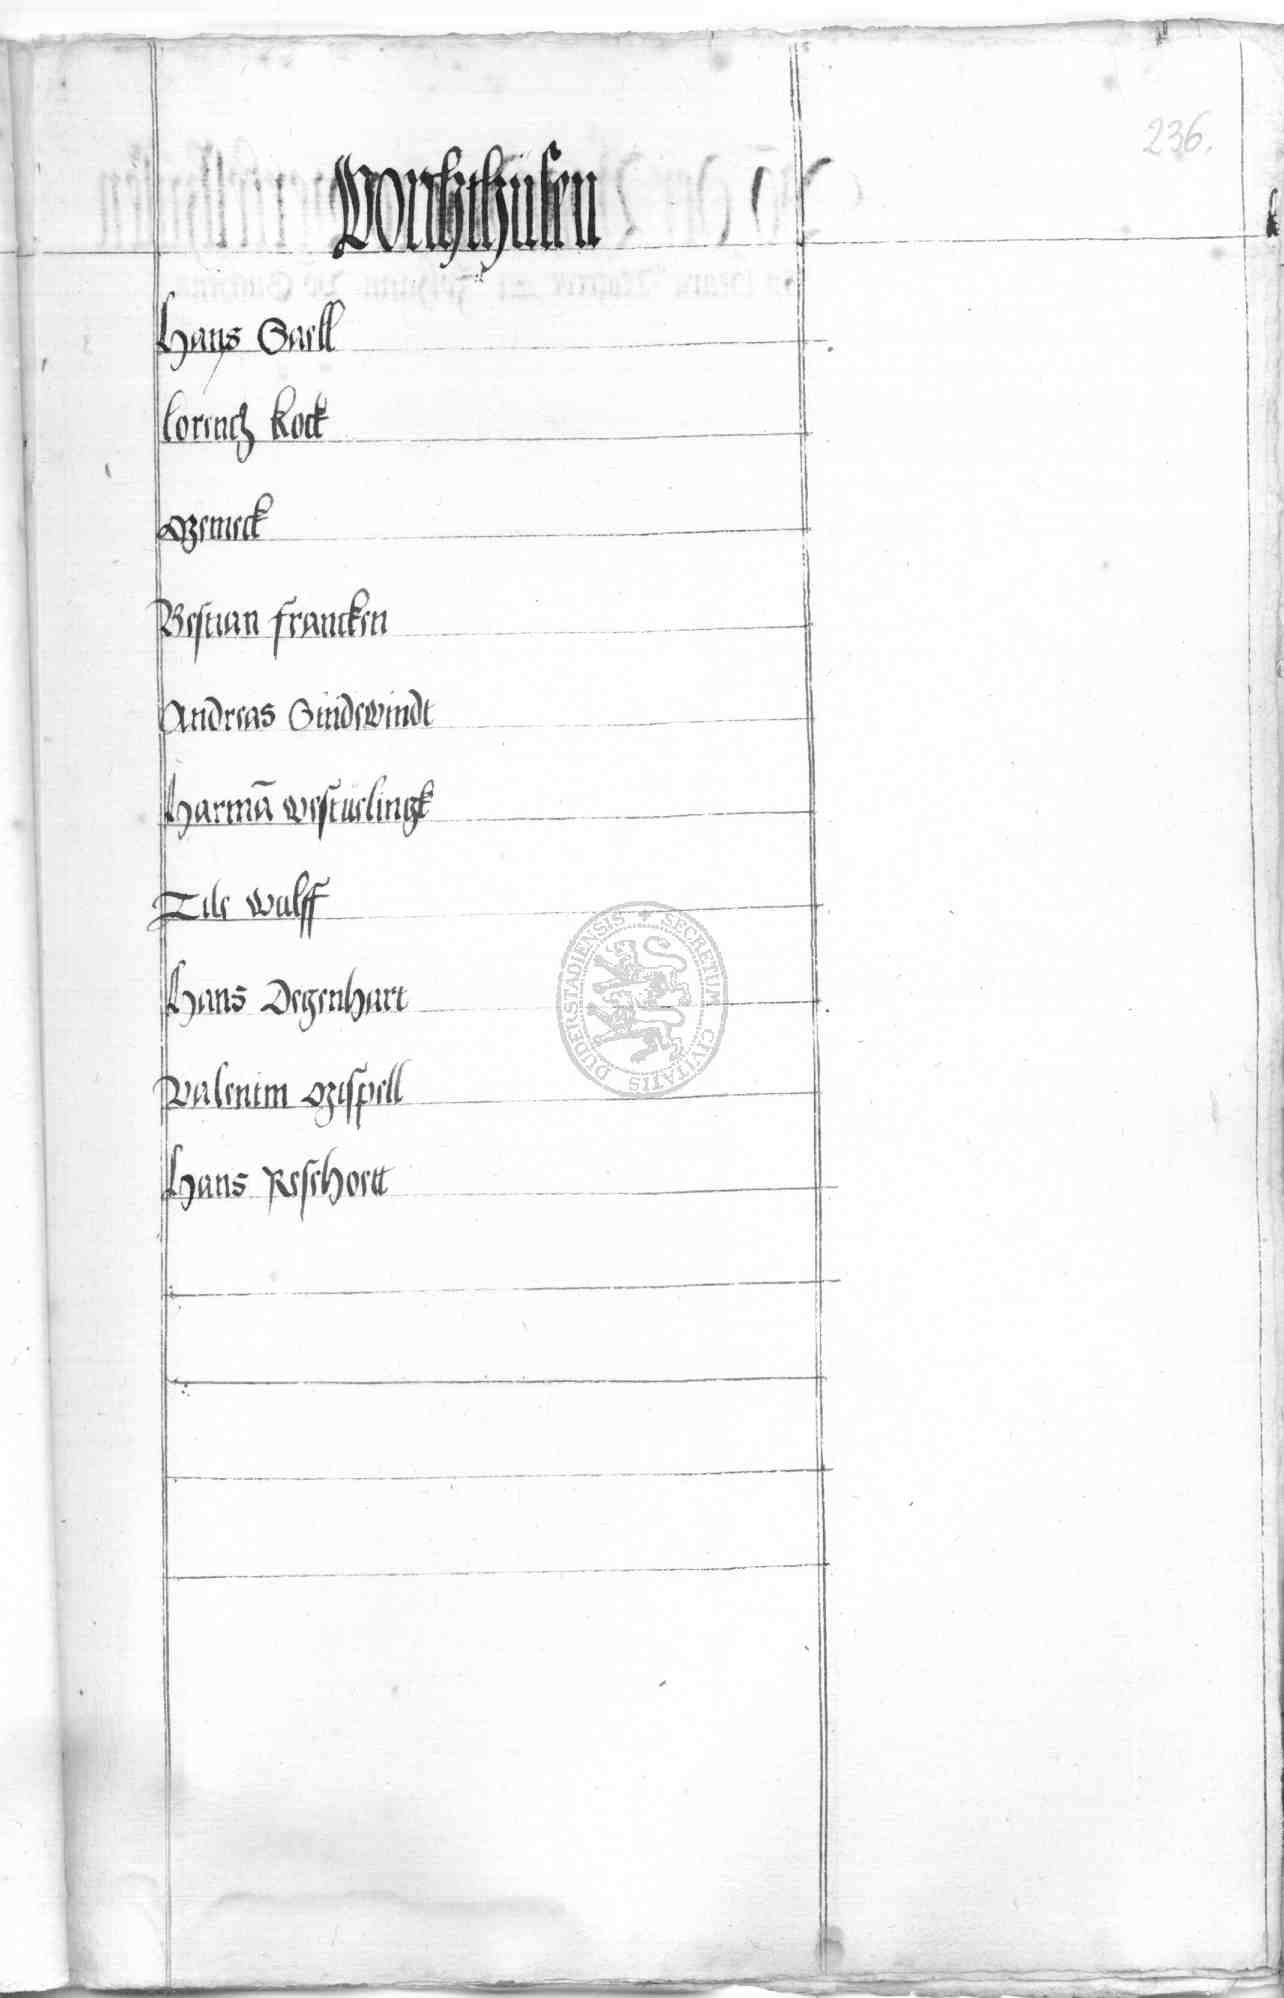 236.
Worchthüsen
Hans Saell
lorentz kock
Ozemeck
Bestian francken
Andreas Sindewindt
Harmā westüelingk
Tile wulff
Hans Degenhart
Valentin Ozispell
Hans Reschoett
SECRETUM CIVITATIS DUDERSTADIENSIS